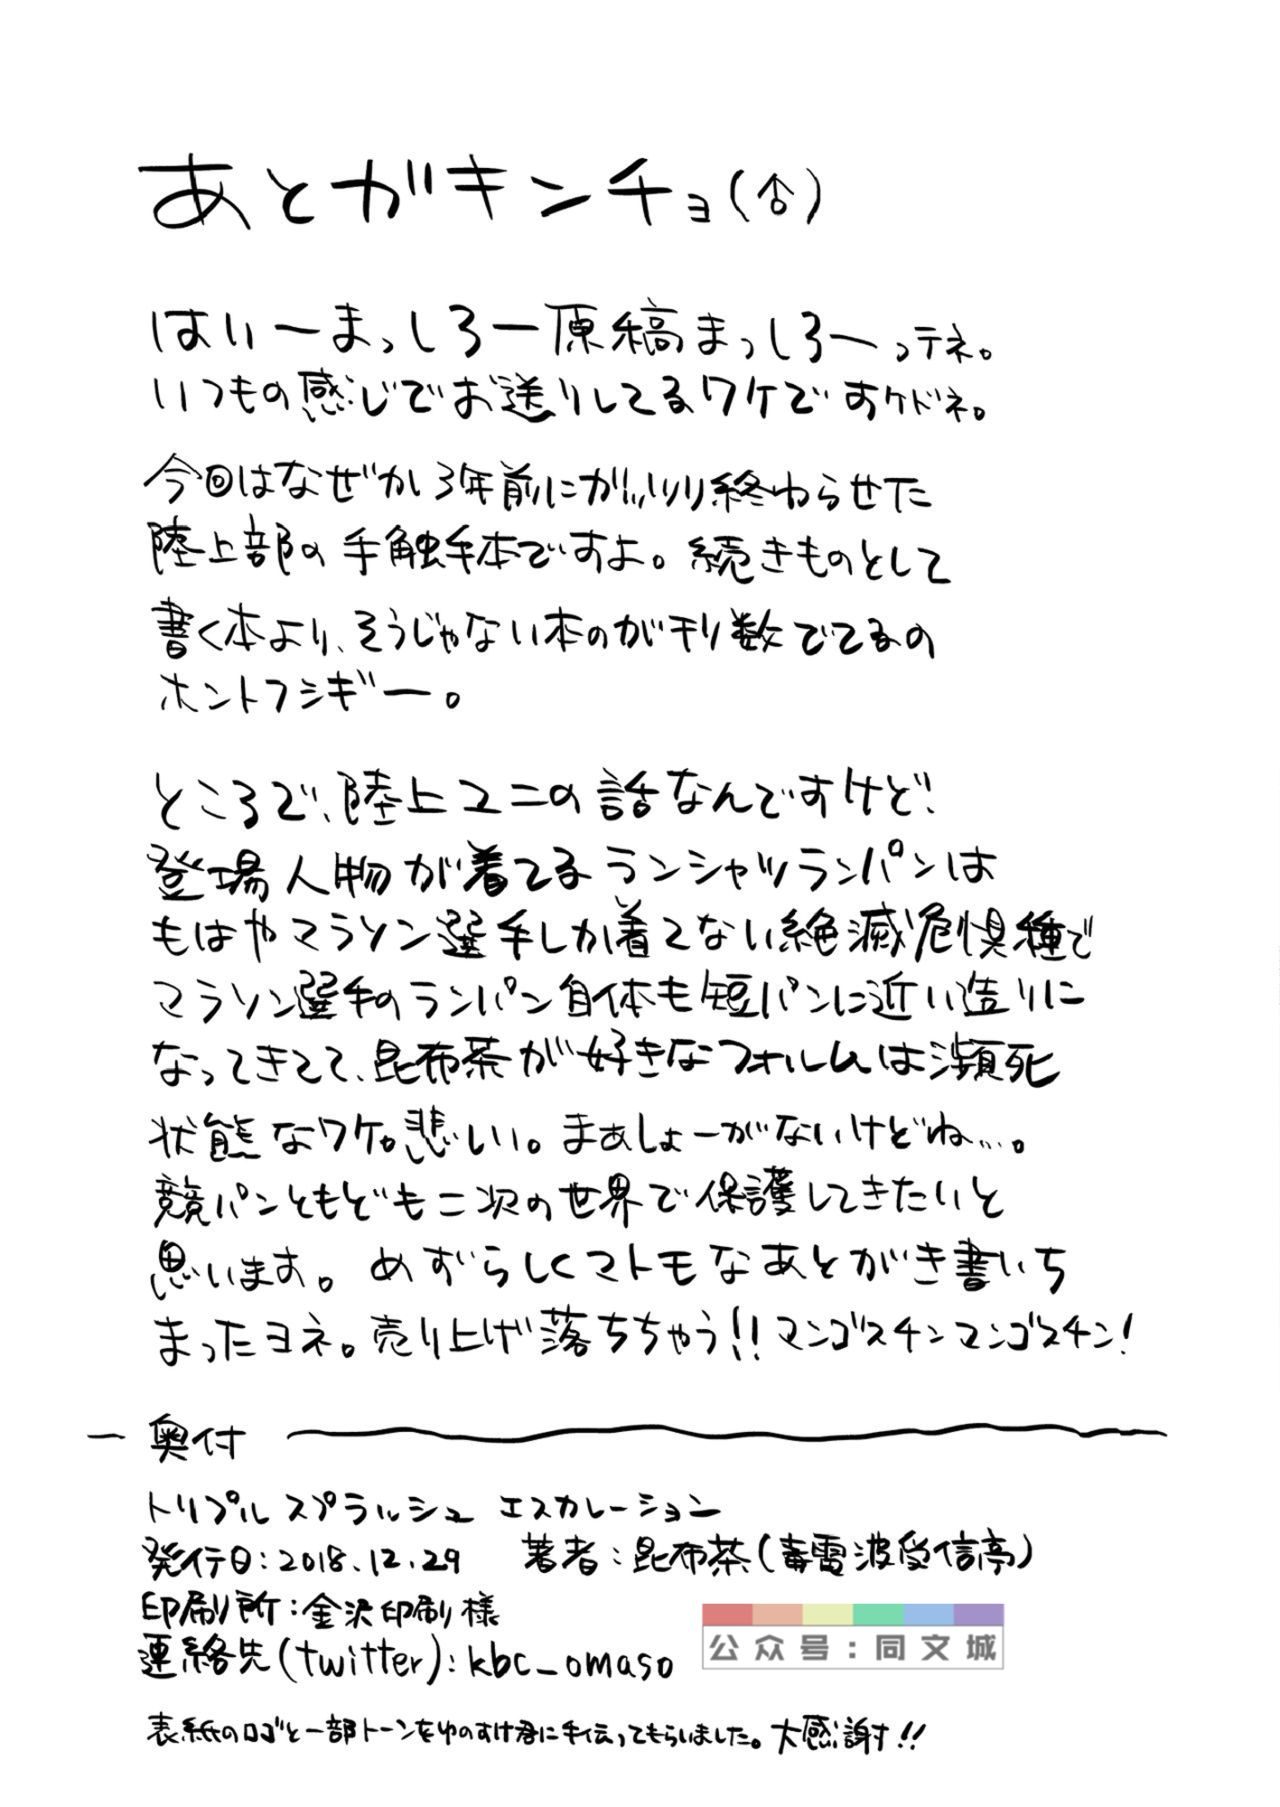 あとがキンチョ(♂)
はい〜まっしろー原稿まっしろーってネ。
いつもの感じでお送りしてるワケですケドネ。
今回はなぜか3年前にがっつり終わらせた
陸上部の手触手本ですよ。続きものとして
書く本より、そうじゃない本のが刊り数でてるの
ホントフシギー。
ところで、陸上ユニの話なんですけど!
登場人物が着てるランシャツランパンは
もはやマラソン選手しか着てない絶滅危惧種で
マラソン選手のランパン自体も短パンに近い造りに
なってきてて、昆布茶が好きなフォルムは瀕死
状態なワケ。悲しい。まぁしょーがないけどね…。
競パンともども二次の世界で保護してきたいと
思います。めずらしくマトモなあとがき書いち
まったヨネ。売り上げ落ちちゃう!!マンゴスチンマンゴスチン!
ー奥付
トリプルスプラッシュ エスカレーション
発行日:2018.12.29 著者:昆布茶(毒電波受信亭)
印刷所:金沢印刷様
連絡先(twitter):kbc_omaso
公众号:同文城
表紙のロゴと一部トーンをゆのすけ君に手伝ってもらいました。大感謝!!